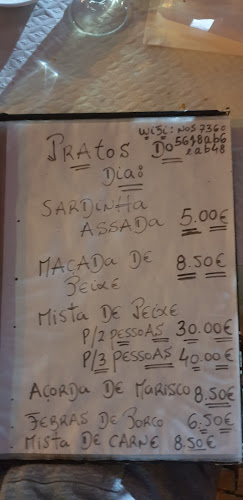 WiFi: NOS7360
5618ab6
2ab48
PRATOS DO
DIA:
SARDINHA
ASSADA 5.00€
MAÇADA DE 8.50€
PEIXE
MISTA DE PEIXE
P/2 PESSOAS 30.00€
P/3 PESSOAS 40.00€
AÇORDA DE MARISCO 8.50€
FEBRAS DE PORCO 6.50€
MISTA DE CARNE 8.50€